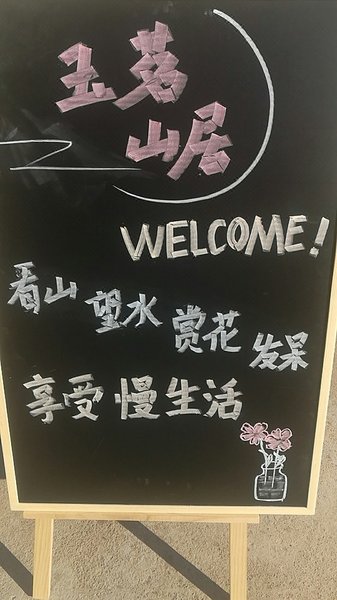 玉茗
山居
WELCOME!
看山 望水 赏花 发呆
享受 慢生活